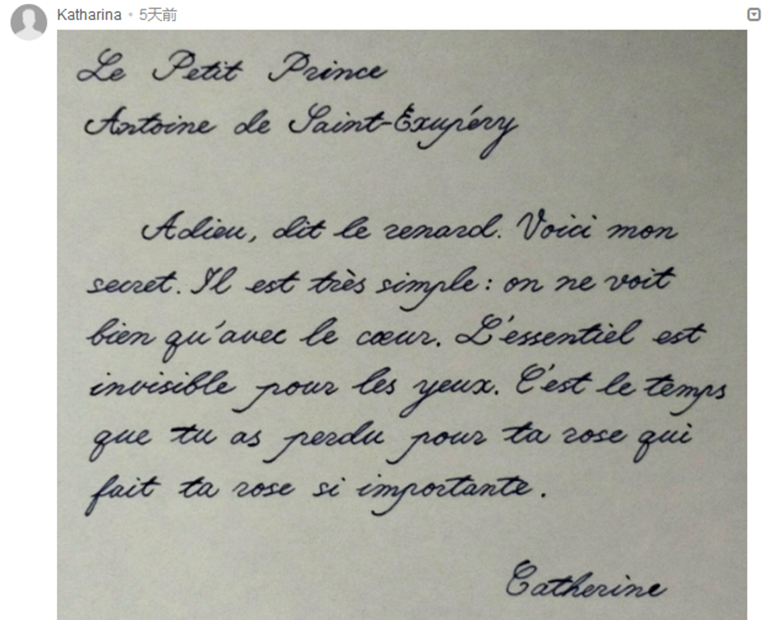 Katharina • 5天前
Le Petit Prince
Antoine de Saint-Exupéry
Adieu, dit le renard. Voici mon
secret. Il est très simple : on ne voit
bien qu'avec le cœur. L'essentiel est
invisible pour les yeux. C'est le temps
que tu as perdu pour ta rose qui
fait ta rose si importante.
Catherine